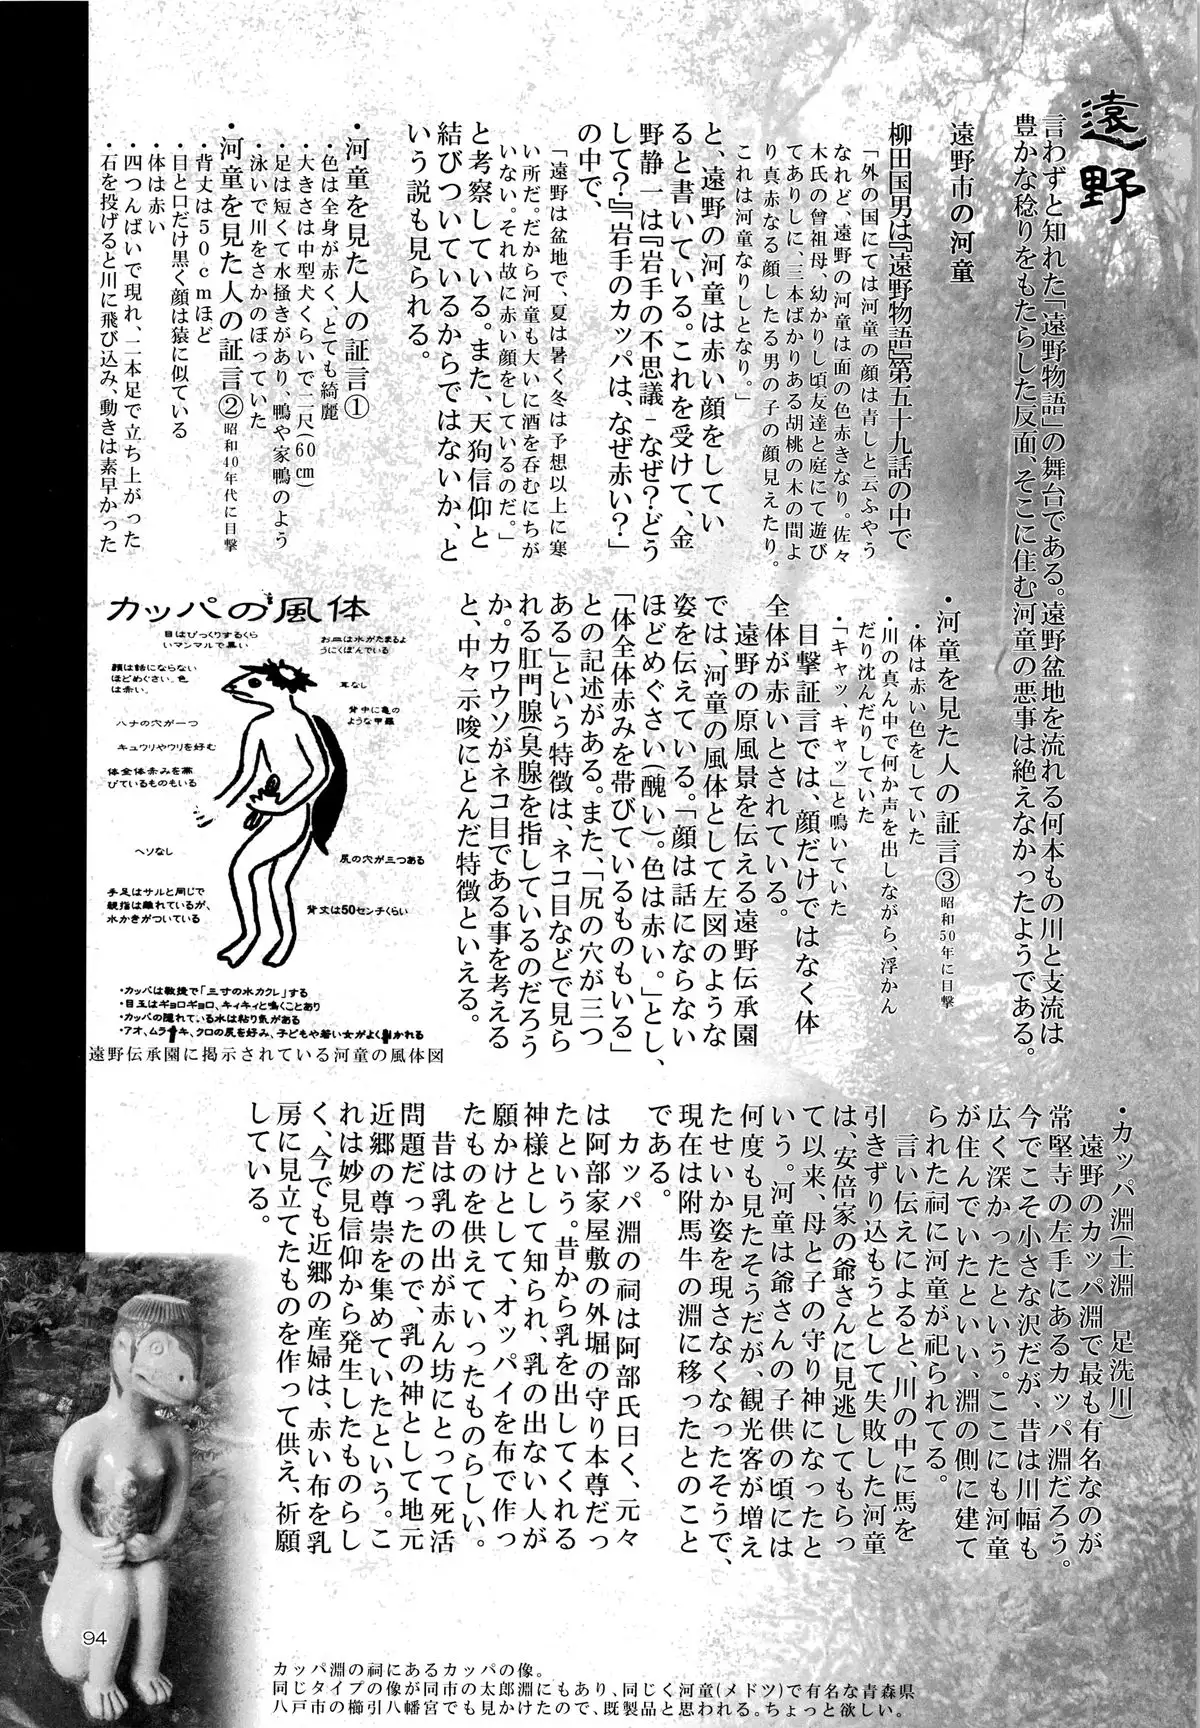 遠野
言わずと知れた「遠野物語」の舞台である。遠野盆地を流れる何本もの川と支流は
豊かな稔りをもたらした反面、そこに住む河童の悪事は絶えなかったようである。
遠野市の河童
柳田国男は『遠野物語』第五十九話の中で
「外の国にては河童の顔は青しと云ふやう
なれど、遠野の河童は面の色赤きなり。佐々
木氏の曾祖母、幼かりし頃友達と庭にて遊び
てありしに、三本ばかりある胡桃の木の間よ
り真赤なる顔したる男の子の顔見えたり。
これは河童なりしとなり。」
と、遠野の河童は赤い顔をしてい
ると書いている。これを受けて、金
野静一は『岩手の不思議－なぜ?どう
して?』『岩手のカッパは、なぜ赤い?』
の中で、
「遠野は盆地で、夏は暑く冬は予想以上に寒
い所だ。だから河童も大いに酒を呑むにちが
いない。それ故に赤い顔をしているのだ。」
と考察している。また、天狗信仰と
結びついているからではないか、と
いう説も見られる。
・河童を見た人の証言①
・色は全身が赤く、とても綺麗
・大きさは中型犬くらいで二尺(60㎝)
・足は短くて水掻きがあり、鴨や家鴨のよう
・泳いで川をさかのぼっていた
・河童を見た人の証言②昭和40年代に目撃
・背丈は50cmほど
・目と口だけ黒く顔は猿に似ている
・体は赤い
・四つんばいで現れ、二本足で立ち上がった
・石を投げると川に飛び込み、動きは素早かった
・河童を見た人の証言③昭和50年に目撃
・体は赤い色をしていた
・川の真ん中で何か声を出しながら、浮かん
だり沈んだりしていた
・「キャッ、キャッ」と鳴いていた
目撃証言では、顔だけではなく体
全体が赤いとされている。
遠野の原風景を伝える遠野伝承園
では、河童の風体として左図のような
姿を伝えている。「顔は話にならない
ほどめぐさい(醜い)。色は赤い。」とし、
「体全体赤みを帯びているものもいる」
との記述がある。また、「尻の穴が三つ
ある」という特徴は、ネコ目などで見ら
れる肛門腺(臭腺)を指しているのだろう
か。カワウソがネコ目である事を考える
と、中々示唆にとんだ特徴といえる。
カッパの風体
目はびっくりするくら
いマンマルで黒い
お皿は水がたまるよ
うにくぼんでいる
顔は話にならない
ほどめぐさい。色
は赤い。
耳なし
背中に亀の
ような甲羅
ハナの穴が一つ
キュウリやウリを好む
体全体赤みを帯
びているものもいる
ヘソなし
尻の穴が三つある
手足はサルと同じで
親指は離れているが、
水かきがついている
背丈は50センチくらい
・カッパは教授で「三寸の水カクレ」する
・目玉はギョロギョロ、キィキィと鳴くことあり
・カッパの隠れている水は粘り気がある
・アオ、ムラ キ、クロの尻を好み、子どもや若い女がよく かれる
遠野伝承園に掲示されている河童の風体図
・カッパ淵(土淵　足洗川)
遠野のカッパ淵で最も有名なのが
常堅寺の左手にあるカッパ淵だろう。
今でこそ小さな沢だが、昔は川幅も
広く深かったという。ここにも河童
が住んでいたといい、淵の側に建て
られた祠に河童が祀られてる。
言い伝えによると、川の中に馬を
引きずり込もうとして失敗した河童
は、安倍家の爺さんに見逃してもらっ
て以来、母と子の守り神になったと
いう。河童は爺さんの子供の頃には
何度も見たそうだが、観光客が増え
たせいか姿を現さなくなったそうで、
現在は附馬牛の淵に移ったとのこと
である。
カッパ淵の祠は阿部氏曰く、元々
は阿部家屋敷の外堀の守り本尊だっ
たという。昔から乳を出してくれる
神様として知られ、乳の出ない人が
願かけとして、オッパイを布で作っ
たものを供えていったものらしい。
昔は乳の出が赤ん坊にとって死活
問題だったので、乳の神として地元
近郷の尊崇を集めていたという。こ
れは妙見信仰から発生したものらし
く、今でも近郷の産婦は、赤い布を乳
房に見立てたものを作って供え、祈願
している。
94
カッパ淵の祠にあるカッパの像。
同じタイプの像が同市の太郎淵にもあり、同じく河童(メドツ)で有名な青森県
八戸市の櫛引八幡宮でも見かけたので、既製品と思われる。ちょっと欲しい。